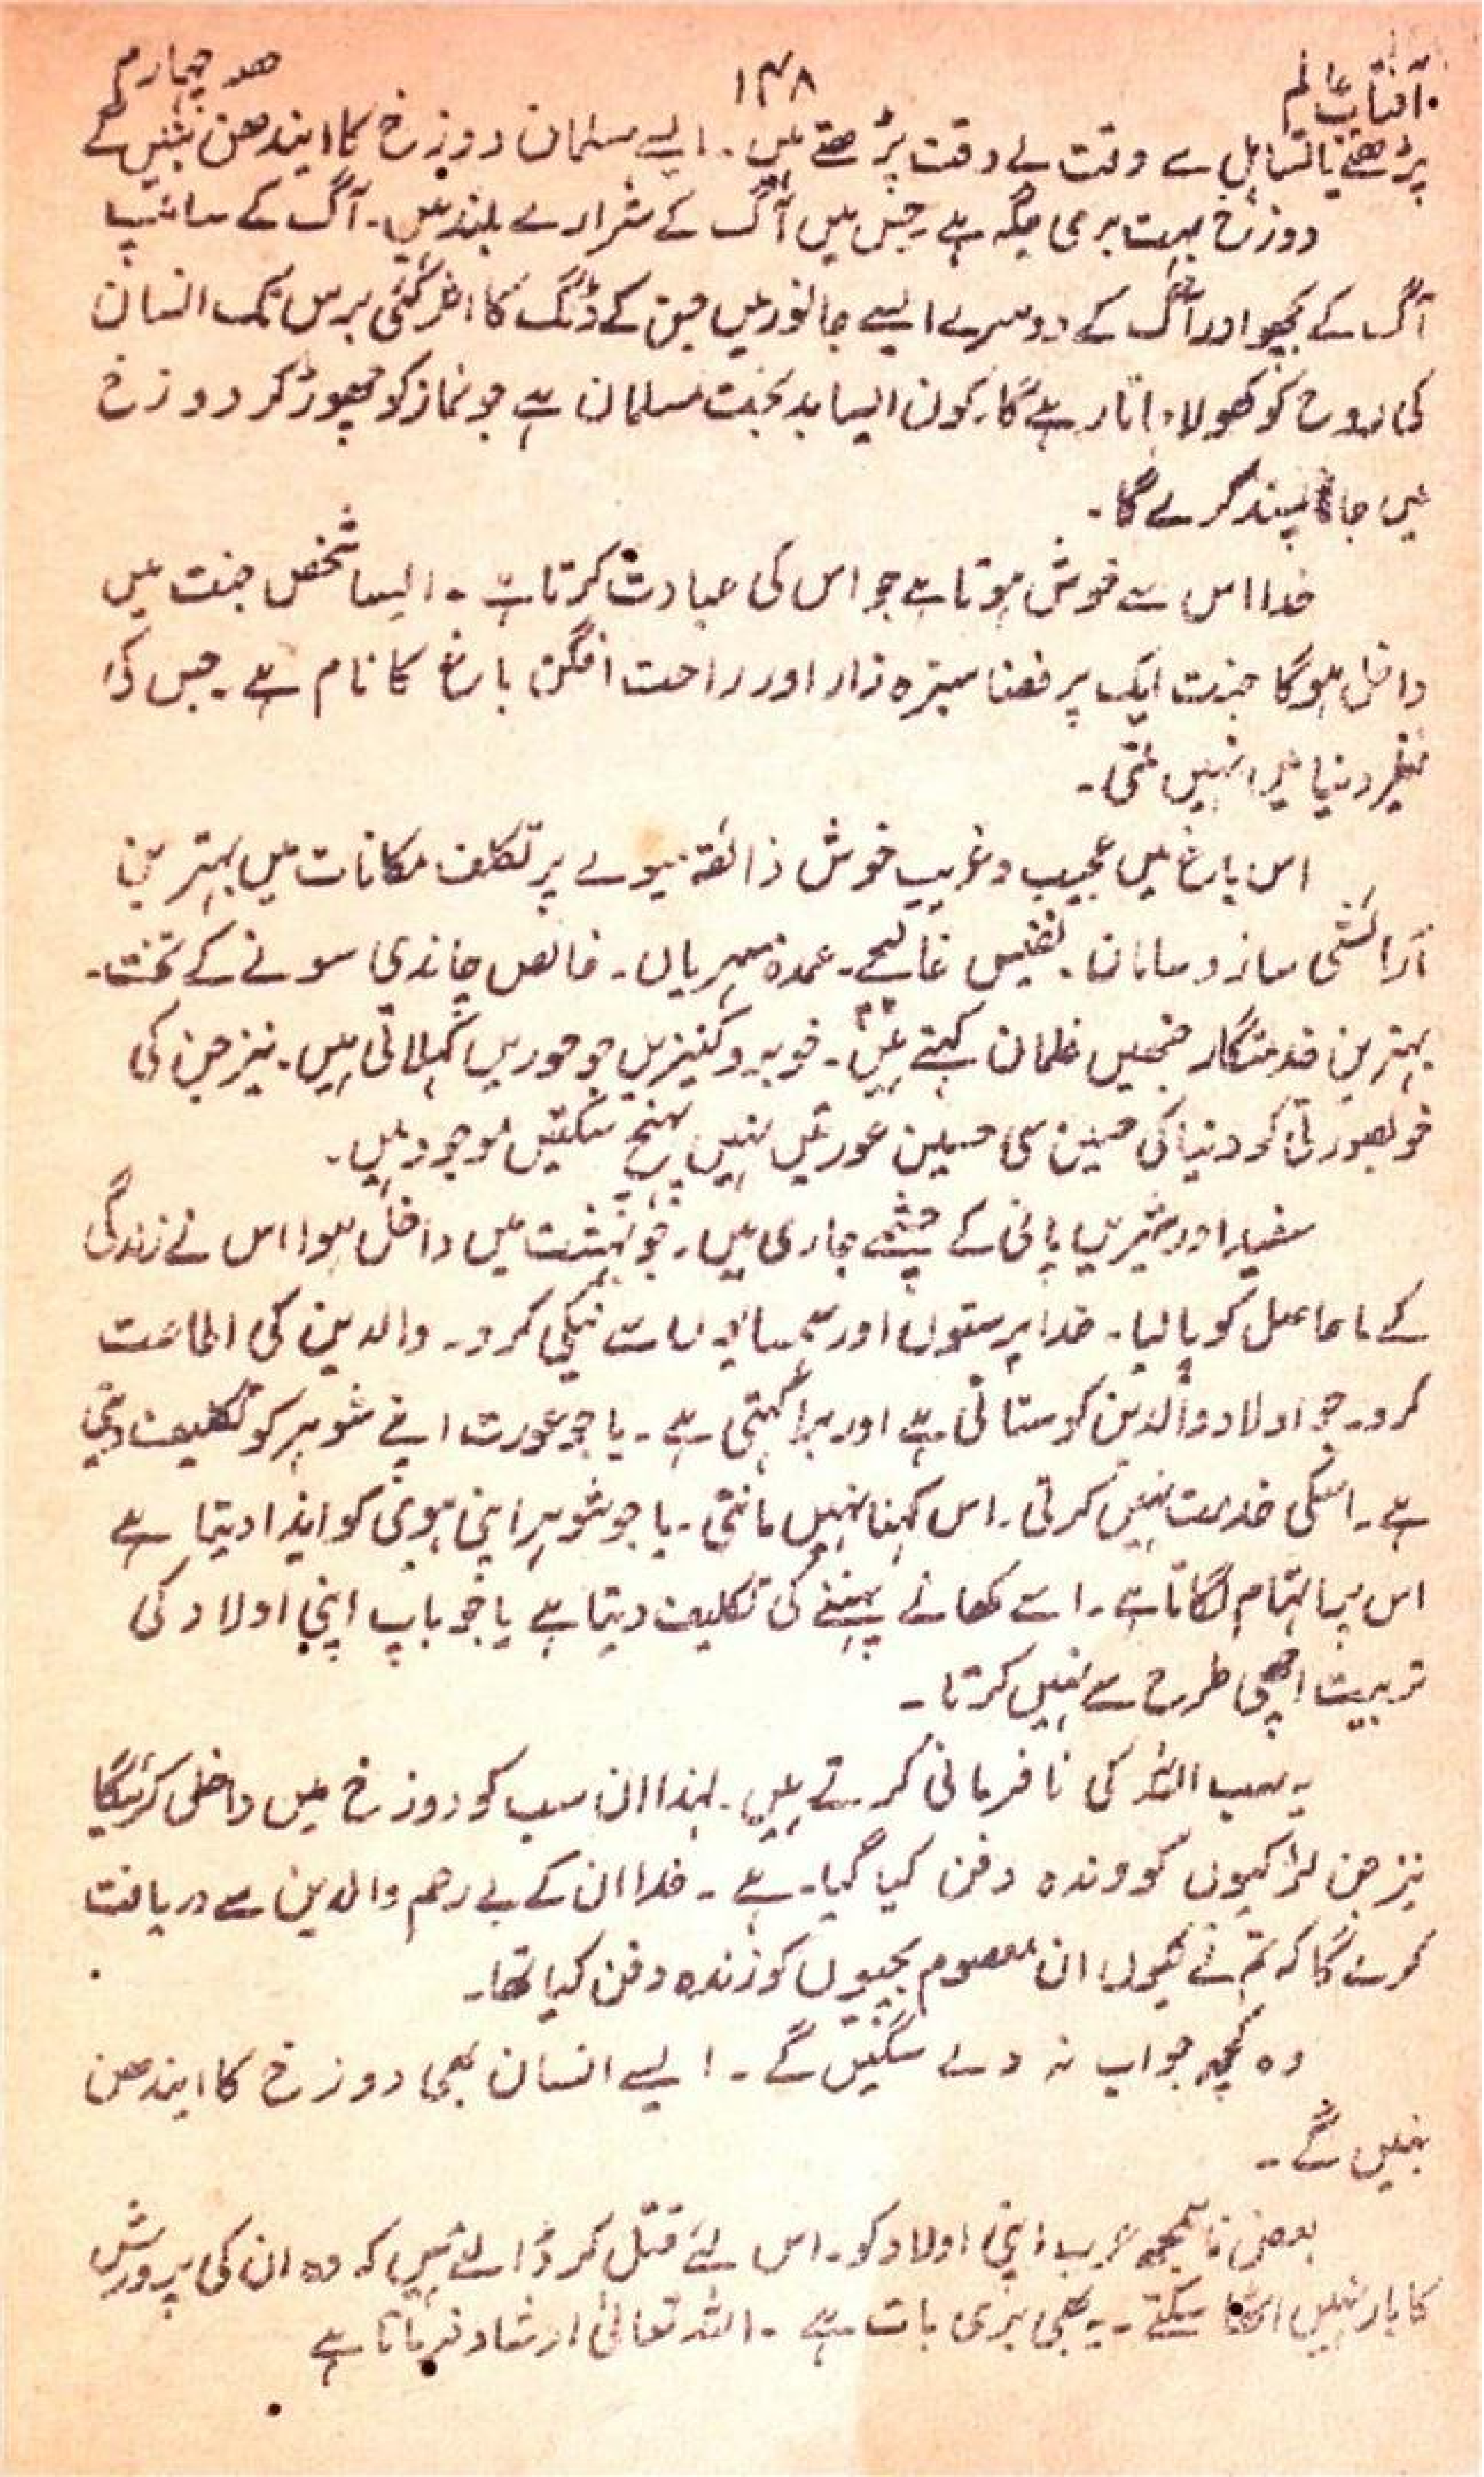 آفتاب عالم ۱۴۸ حصہ چہارم
پڑھتے یا تساہل سے وقت بے وقت پڑھتے ہیں۔ ایسے مسلمان دوزخ کا ایندھن بنیں گے
دوزخ بہت بری جگہ ہے جس میں آگ کے شرارے بلند ہیں۔ آگ کے سانپ
آگ کے بچھو اور آگ کے دوسرے ایسے جانور ہیں جن کے ڈنگ کا اثر کئی برس تک انسان
کی روح کو کھولاتا رہے گا۔ کون ایسا بدبخت مسلمان ہے جو نماز کو چھوڑ کر دوزخ
میں جانا پسند کرے گا۔
خدا اس سے خوش ہوتا ہے جو اس کی عبادت کرتا ہے۔ ایسا شخص جنت میں
داخل ہوگا جنت ایک پر فضا سبزہ زار اور راحت افگن باغ کا نام ہے۔ جس کی
نظیر دنیا میں نہیں ملتی۔
اس باغ میں عجیب و غریب خوش ذائقہ میوے پر تکلف مکانات میں بہترین
آرائشی ساز و سامان۔ نفیس غالیچے۔ عمدہ مسہریاں۔ خالص چاندی سونے کے تخت۔
بہترین خدمتگار جنھیں غلمان کہتے ہیں۔ خوبرو کنیزیں جو حوریں کہلاتی ہیں۔ نیز جن کی
خوبصورتی کو دنیا کی حسین سی حسین عورتیں نہیں پہنچ سکتیں موجود ہیں۔
سفید اور شیریں پانی کے چشمے جاری ہیں۔ جو بہشت میں داخل ہوا اس نے زندگی
کے ماحاصل کو پالیا۔ خدا پرستوں اور ہمسایوں سے نیکی کرو۔ والدین کی اطاعت
کرو۔ جو اولاد والدین کو ستاتی ہے اور برا کہتی ہے۔ یا جو عورت اپنے شوہر کو تکلیف دیتی
ہے۔ اسکی خدمت نہیں کرتی۔ اس کہنا نہیں مانتی۔ یا جو شوہر اپنی بیوی کو ایذا دیتا ہے
اس پہ اتہام لگاتا ہے۔ اسے کھانے پہننے کی تکلیف دیتا ہے یا جو باپ اپنی اولاد کی
تربیت اچھی طرح سے نہیں کرتا۔
یہ سب اللہ کی نافرمانی کرتے ہیں۔ لہذا ان سب کو دوزخ میں داخل کریگا
نیز جن لڑکیوں کو زندہ دفن کیا گیا۔ ہے۔ خدا ان کے بے رحم والدین سے دریافت
کرے گا کہ تم نے کیوں ان معصوم بچیوں کو زندہ دفن کیا تھا۔
وہ کچھ جواب نہ دے سکیں گے۔ ایسے انسان بھی دوزخ کا ایندھن
بنیں گے۔
بعض ناسمجھ عرب اپنی اولاد کو۔ اس لئے قتل کر ڈالتے ہیں کہ وہ ان کی پرورش
کا بار نہیں اٹھا سکتے۔ یہ بھی بری بات ہے۔ اللہ تعالیٰ ارشاد فرماتا ہے